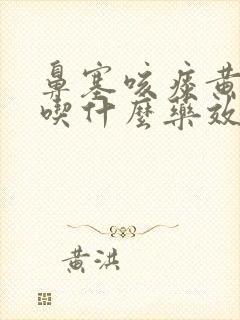 鼻塞咳痰黄
喫什麼藥效
黄洪